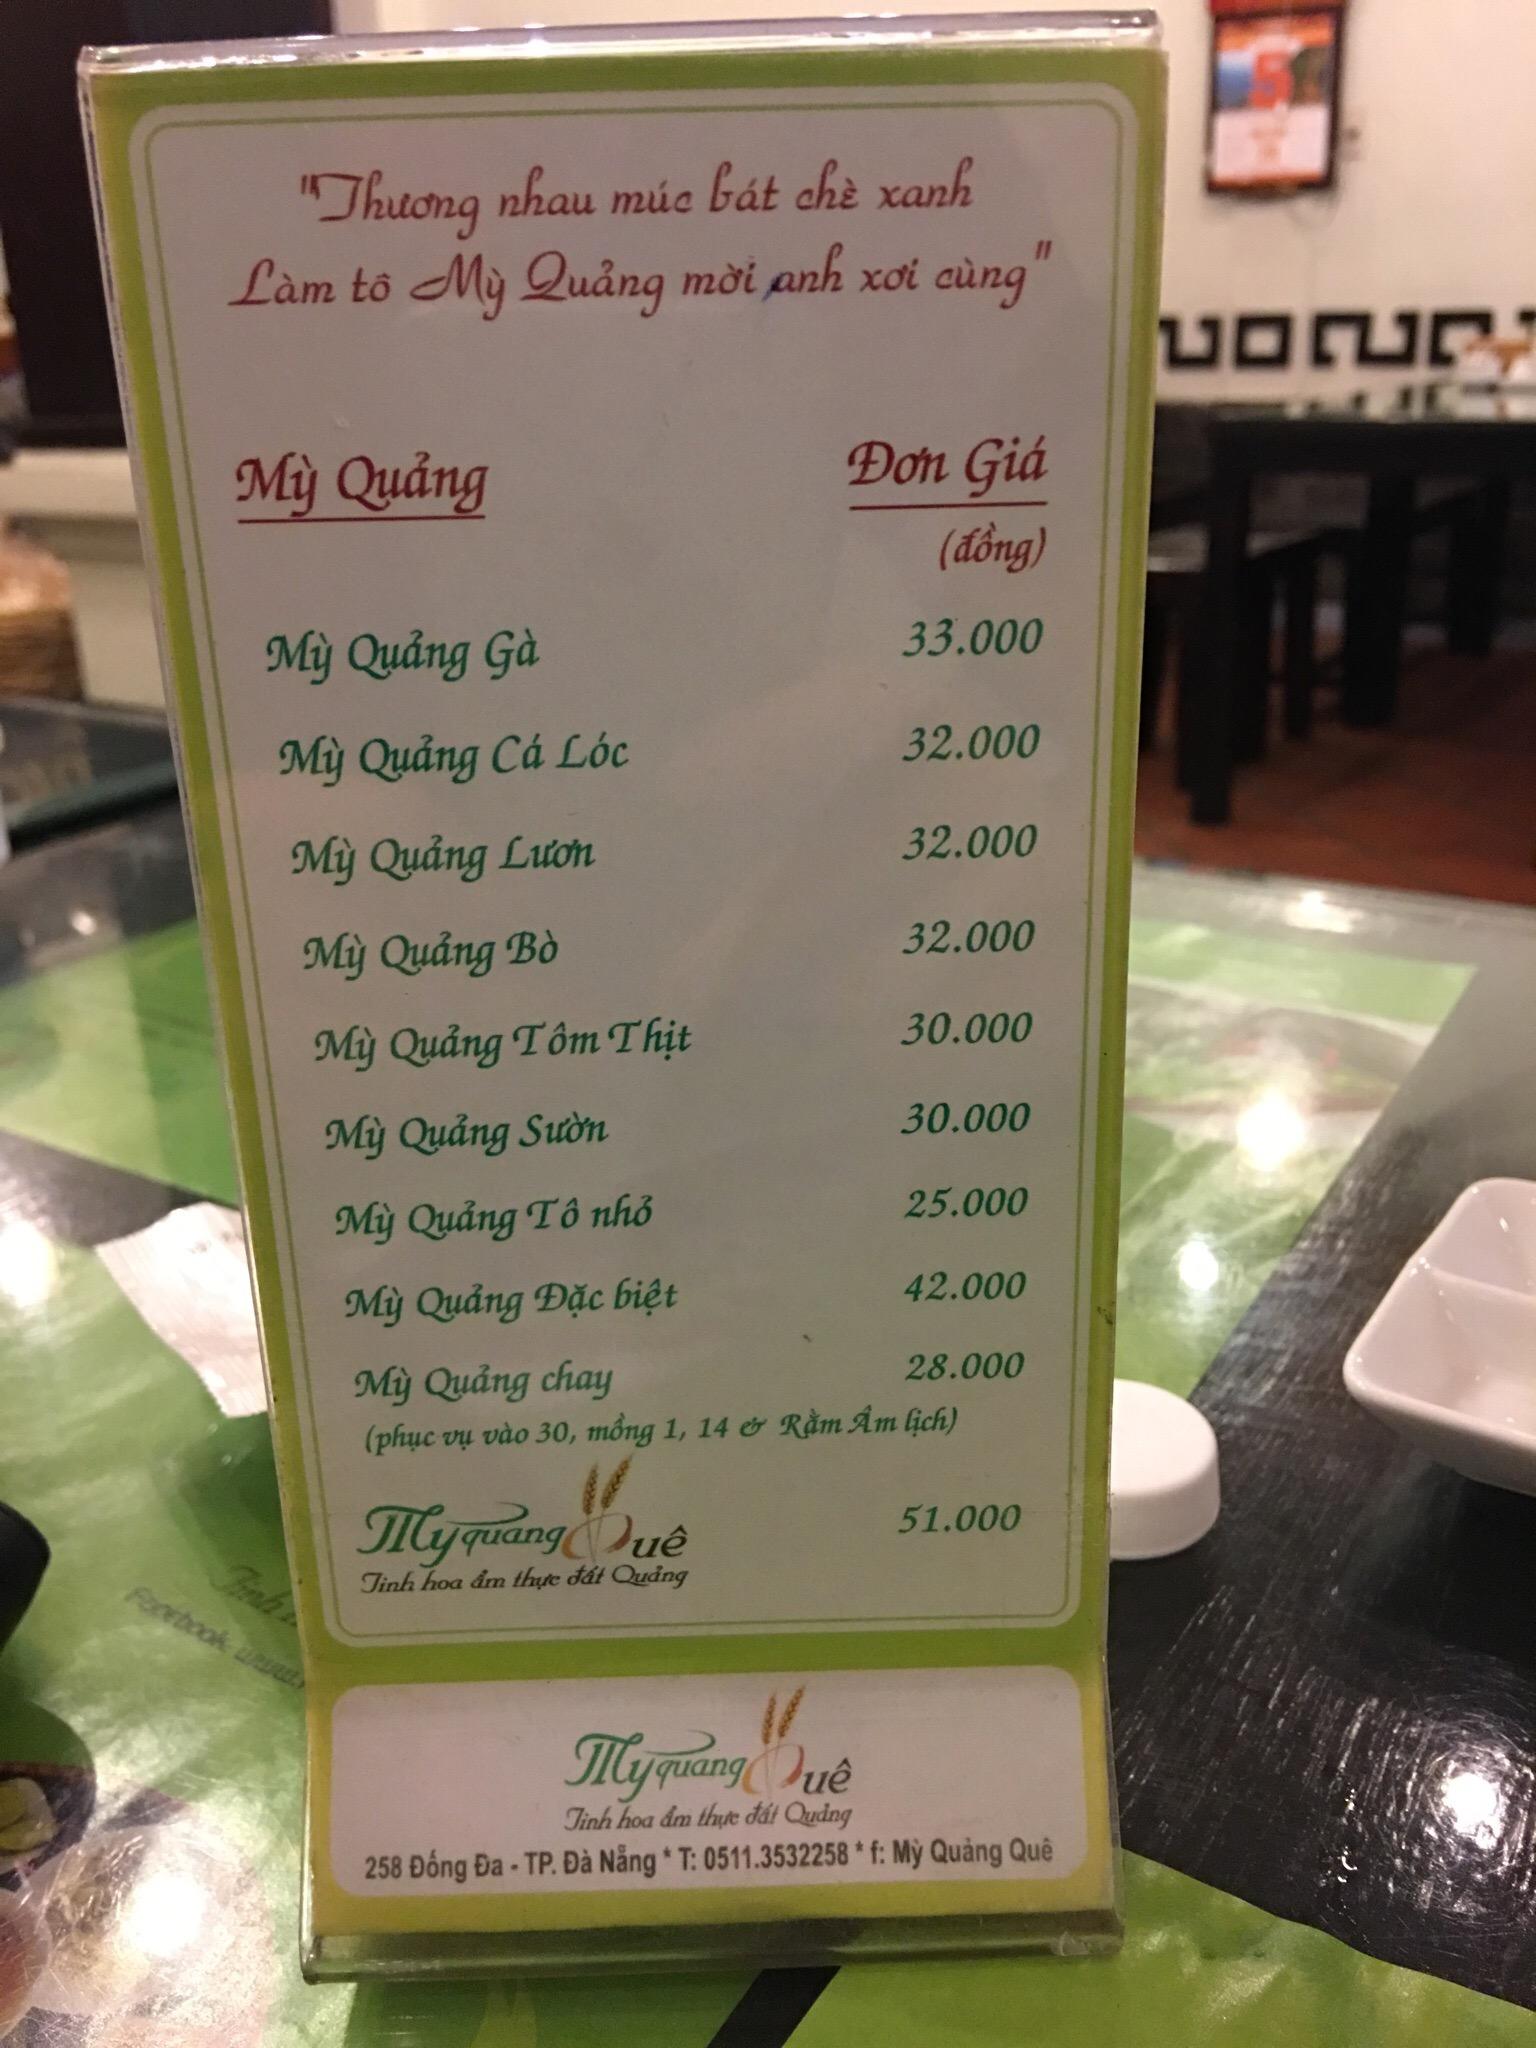 "Thương nhau múc bát chè xanh
Làm tô Mỳ Quảng mời anh xơi cùng"
Mỳ Quảng Đơn Giá
(đồng)
Mỳ Quảng Gà 33.000
Mỳ Quảng Cá Lóc 32.000
Mỳ Quảng Lươn 32.000
Mỳ Quảng Bò 32.000
Mỳ Quảng Tôm Thịt 30.000
Mỳ Quảng Sườn 30.000
Mỳ Quảng Tô nhỏ 25.000
Mỳ Quảng Đặc biệt 42.000
Mỳ Quảng chay 28.000
(phục vụ vào 30, mồng 1, 14 & Rằm Âm lịch)
Myquang Quê 51.000
Tinh hoa ẩm thực đất Quảng
Myquang Quê
Tinh hoa ẩm thực đất Quảng
258 Đống Đa - TP. Đà Nẵng * T: 0511.3532258 * f: Mỳ Quảng Quê
Tinh
Facebook: www.
5